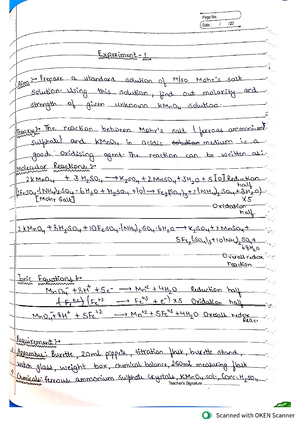 Page No.
Date / /20
Experiment - 1
Aim :- Prepare a standard solution of M/50 Mohr's salt
solution. Using this solution, find out molarity and
strength of given unknown KMnO4 solution.
Theory :- The reaction between Mohr's salt (ferrous ammonium
sulphate) and KMnO4 in acidic medium is a
good Oxidising agent. The reaction can be written as:
Molecular Reactions :-
2KMnO4 + 3H2SO4 → K2SO4 + 2MnSO4 + 3H2O + 5[O] Reduction
half
[Mohr Salt] x5
Oxidation
half
2KMnO4 + 8H2SO4 + 10FeSO4.(NH4)2SO4.6H2O → K2SO4 + 2MnSO4 +
5Fe2(SO4)3 + 10(NH4)2SO4
Overall redox
reaction
Ionic Equations :-
MnO4- + 8H+ + 5e- → Mn+2 + 4H2O Reduction half
Fe+2 → Fe+3 + e- ] x5 Oxidation half
MnO4- + 8H+ + 5Fe+2 → Mn+2 + 5Fe+3 + 4H2O Overall redox
Requirements :-
Apparatus: Burette, 20ml pippete, titration flask, burette stand,
watch glass, weight box, chemical balance, 250ml measuring flask
Chemicals: ferrous ammonium sulphate crystals, KMnO4 sol, Conc. H2SO4
Teacher's Signature
Scanned with OKEN Scanner